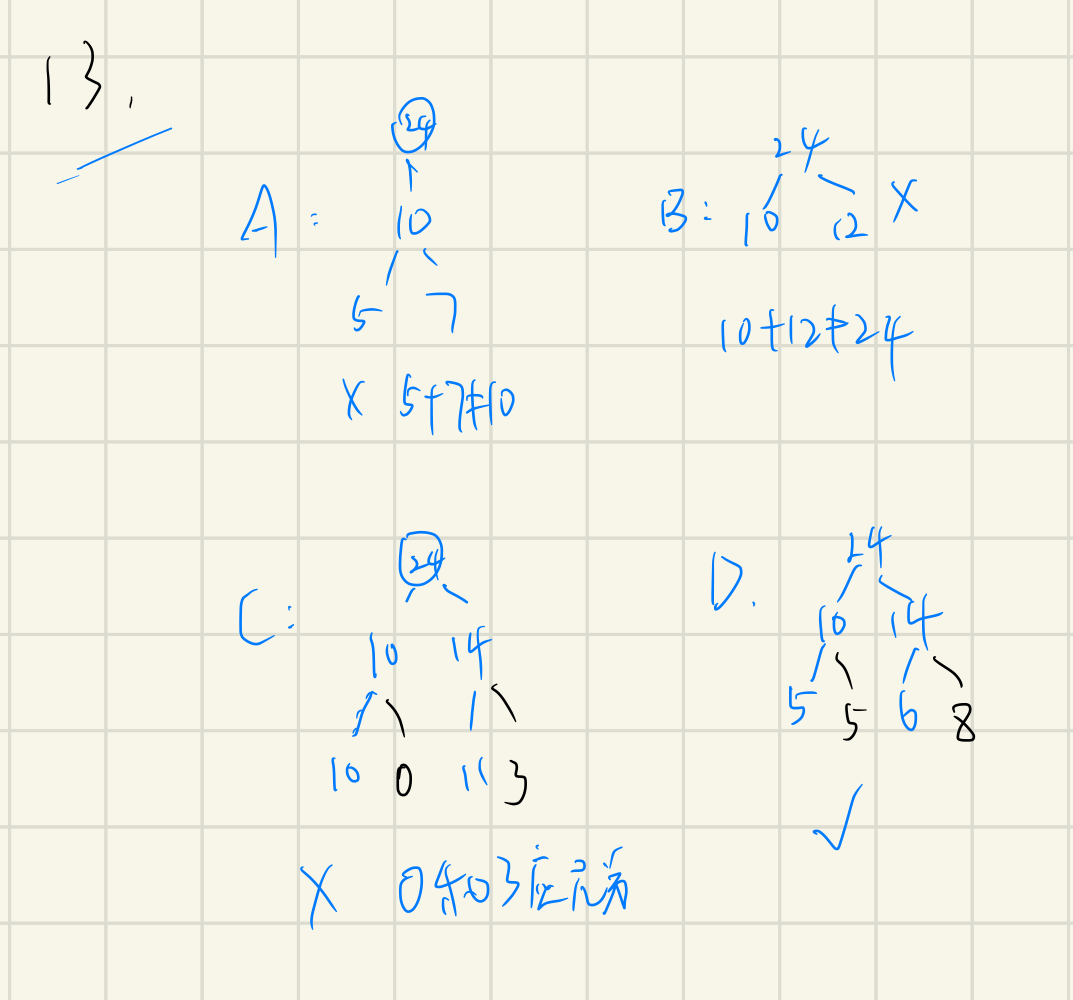 13.
A:
24
10
5 7
× 5+7≠10
B:
24
10 12 ×
10+12≠24
C:
24
10 14
10 0 11 3
× 0和3应兄弟
D.
24
10 14
5 5 6 8
✓